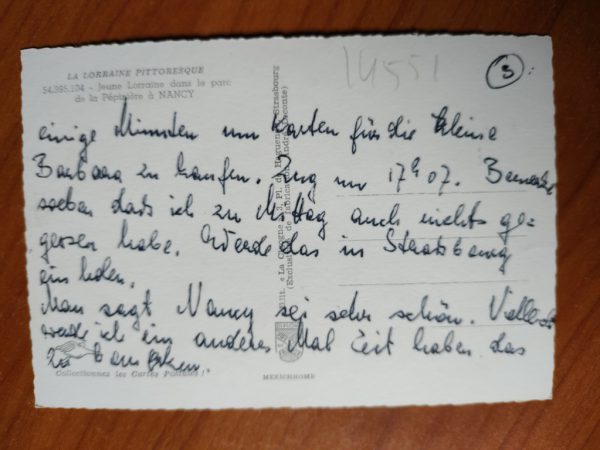 14551
3
LA LORRAINE PITTORESQUE
54.395.104 - Jeune Lorraine dans le parc
de la Pépinière à NANCY
einige Minuten um Karten für die kleine
Barbara zu kaufen. Zug um 17h07. Bemerke
soeben dass ich zu Mittag auch nichts ge-
gessen habe. Werde das in Strassbourg
ein holen.
Man sagt Nancy sei sehr schön. Vielleicht
werde ich ein anderes Mal Zeit haben das
zu
Collectionnez les Cartes Postales !
MEXICHROME
Edit. « La Cigogne » Pl. de Haguenau, Strasbourg